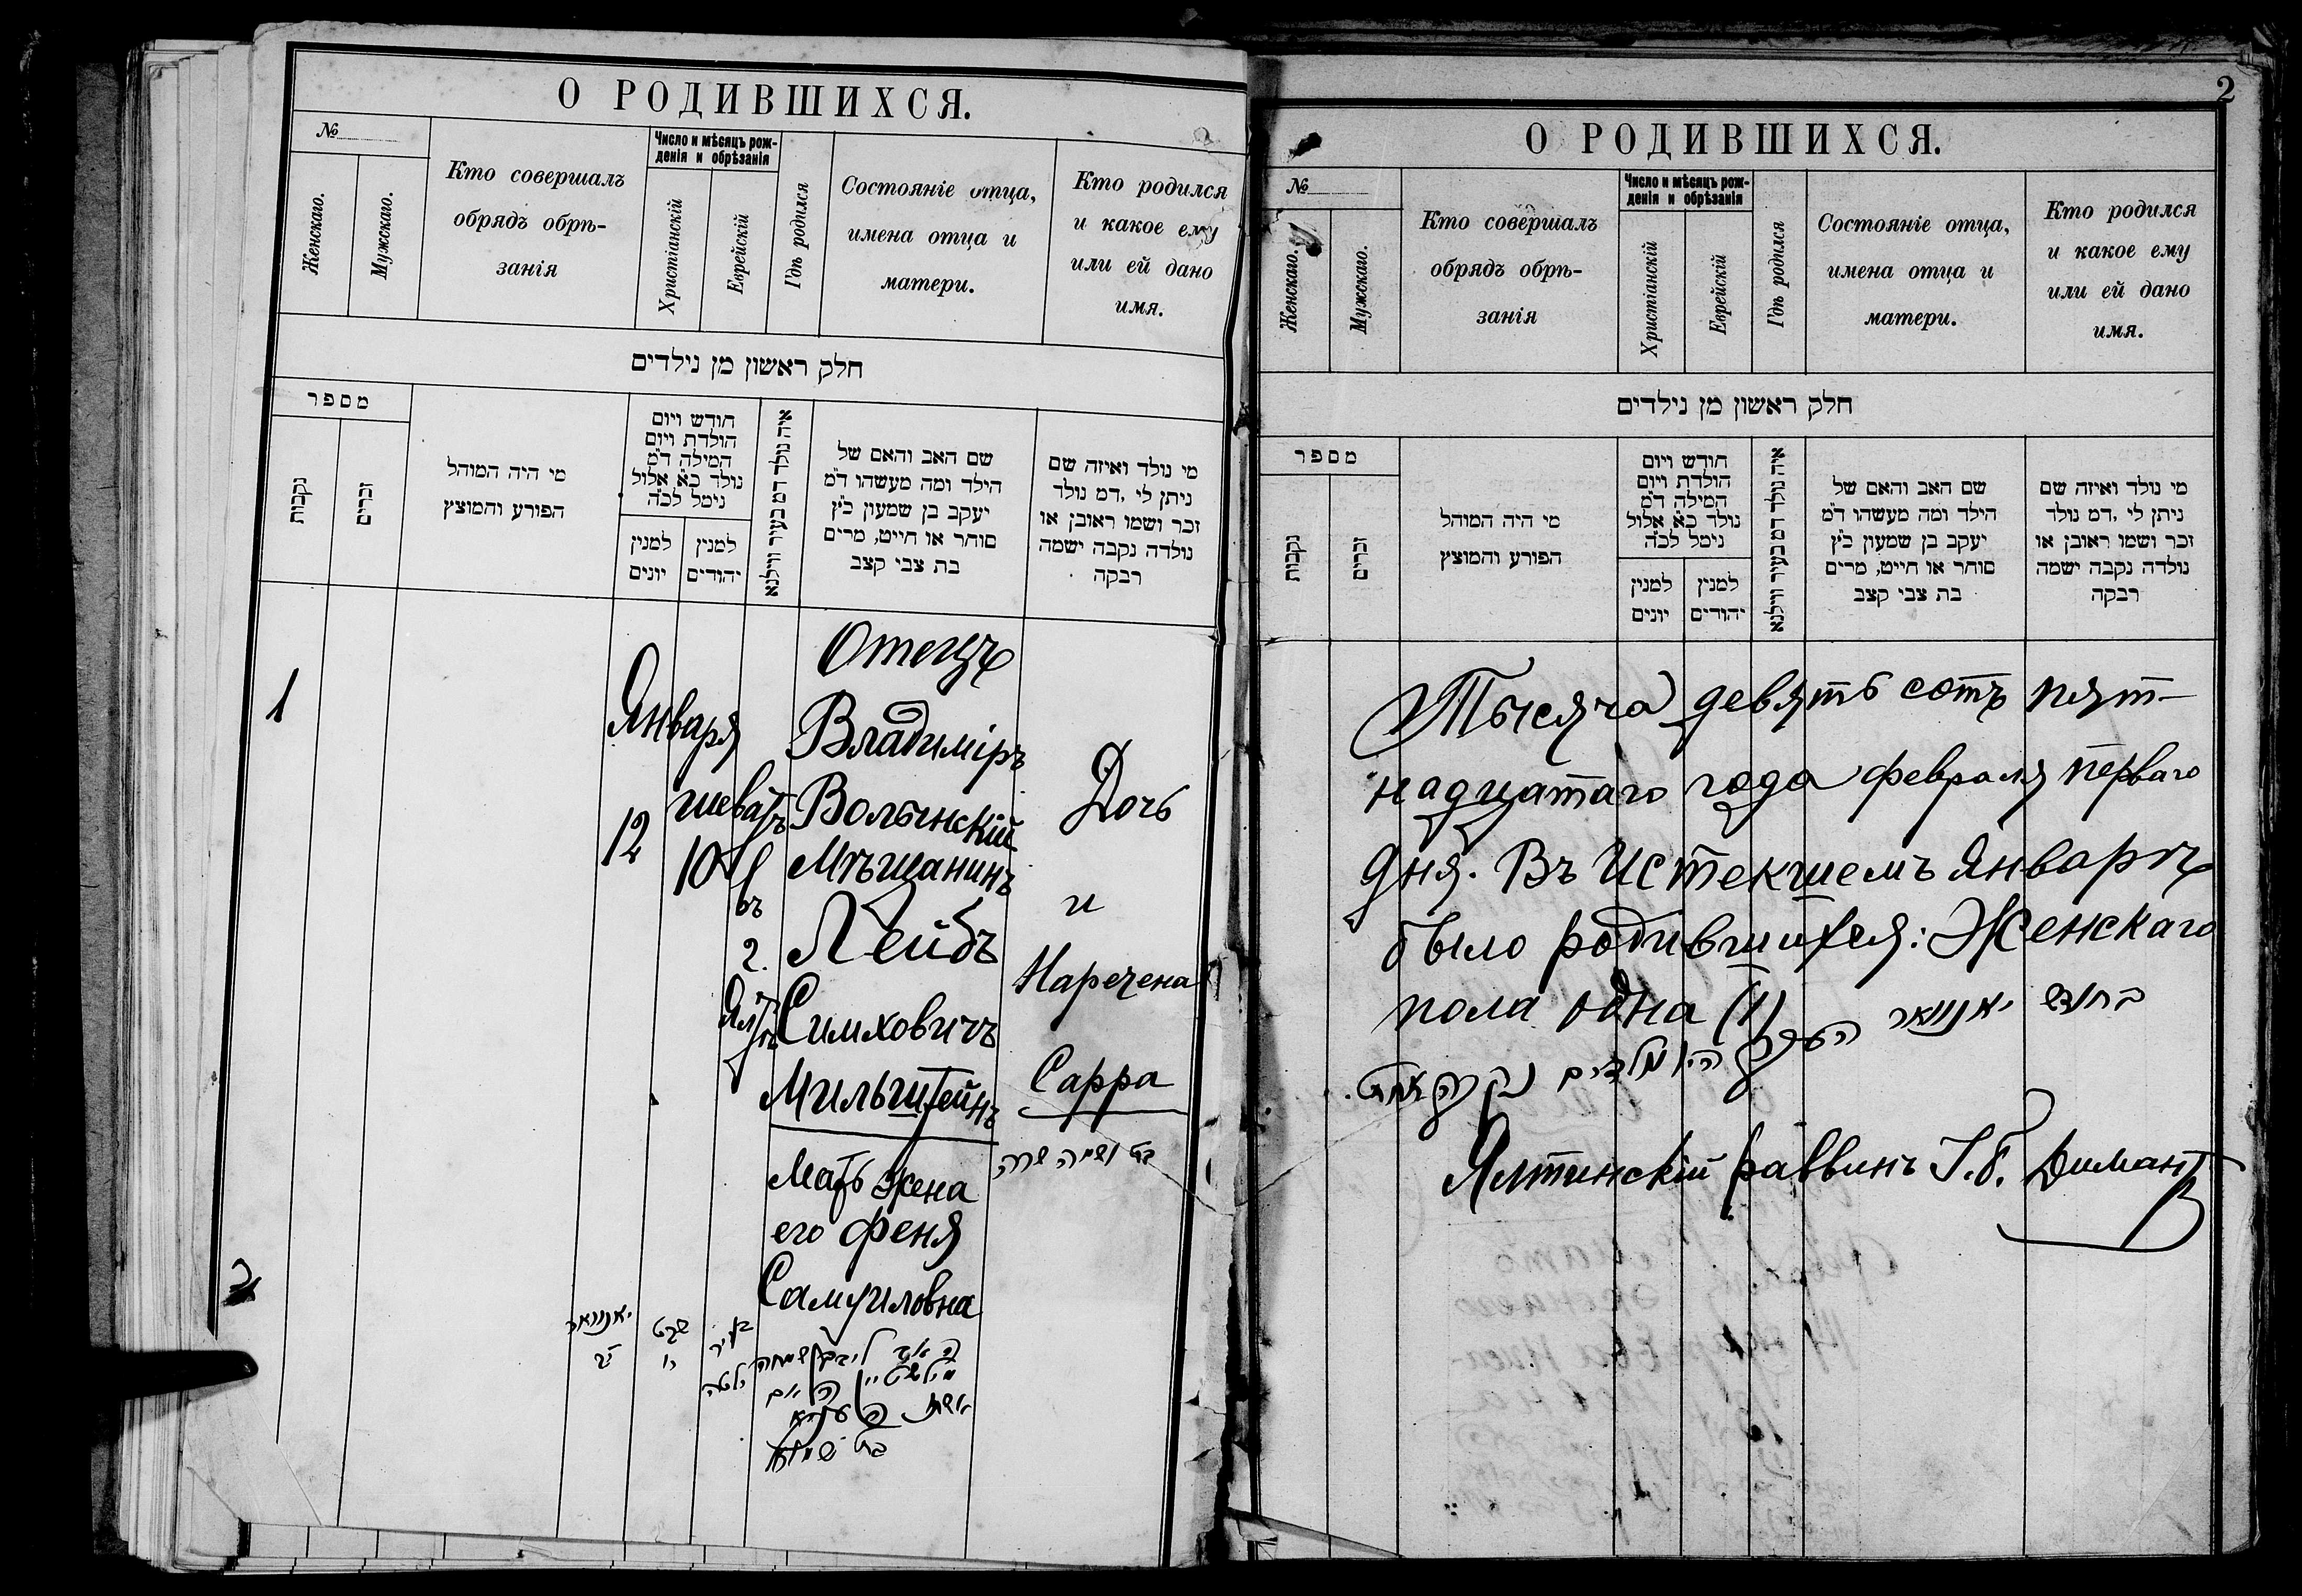 О РОДИВШИХСЯ.
№
Женскаго.
Мужскаго.
Кто совершалъ
обрядъ обрѣ-
занія
Число и мѣсяцъ рож-
денія и обрѣзанія
Христіанскій
Еврейскій
Гдѣ родился
Состояніе отца,
имена отца и
матери.
Кто родился
и какое ему
или ей дано
имя.
חלק ראשון מן נילדים
מספר
נקבות
זכרים
מי היה המוהל
הפורע והמוצץ
חודש ויום
הולדת ויום
המילה ד"מ
נולד כ"א אלול
נימל לכ"ה
למנין
יונים
למנין
יהודים
איה נולד דמ בעיר ווילנא
שם האב והאם של
הילד ומה מעשהו ד"מ
יעקב בן שמעון כ"ץ
סוחר או חייט, מרים
בת צבי קצב
מי נולד ואיזה שם
ניתן לי, דמ נולד
זכר ושמו ראובן או
נולדה נקבה ישמה
רבקה
1
Января
12
шеватъ
10
въ
г.
Ял
Отецъ
Владиміръ
Волынскій
Мѣщанинъ
Лейбъ
Симховичъ
Мильштейнъ
Мать жена
его Феня
Самуиловна
Дочь
и
Наречена
Сарра
בת ושמה שרה
יאנוואר
יב
שבט
י
בעיר
ילטה
האב ליב בן שמחה
מילשטיין האם
אשתו
בת שמואל
2
О РОДИВШИХСЯ.
№
Женскаго.
Мужскаго.
Кто совершалъ
обрядъ обрѣ-
занія
Число и мѣсяцъ рож-
денія и обрѣзанія
Христіанскій
Еврейскій
Гдѣ родился
Состояніе отца,
имена отца и
матери.
Кто родился
и какое ему
или ей дано
имя.
חלק ראשון מן נילדים
מספר
נקבות
זכרים
מי היה המוהל
הפורע והמוצץ
חודש ויום
הולדת ויום
המילה ד"מ
נולד כ"א אלול
נימל לכ"ה
למנין
יונים
למנין
יהודים
איה נולד דמ בעיר ווילנא
שם האב והאם של
הילד ומה מעשהו ד"מ
יעקב בן שמעון כ"ץ
סוחר או חייט, מרים
בת צבי קצב
מי נולד ואיזה שם
ניתן לי, דמ נולד
זכר ושמו ראובן או
נולדה נקבה ישמה
רבקה
Тысяча девятьсотъ пят-
надцатаго года февраля перваго
дня. Въ истекшемъ Январѣ
было родившихся: Женскаго
пола одна (1)
בחודש יאנוואר
היו נולדים נקבה אחת.
Ялтинскій раввинъ І.б. Димант